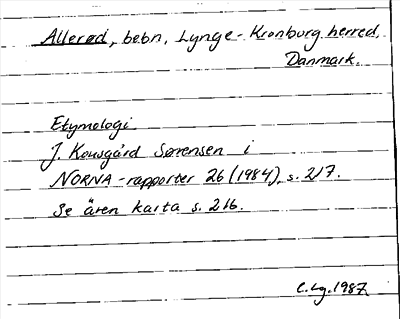 Allerød, bebn, Lynge-Kronborg herred,
Danmark.
Etymologi
J. Kousgård Sørensen i
NORNA-rapporter 26 (1984), s. 217.
Se även karta s. 216.
C.Lg. 1987